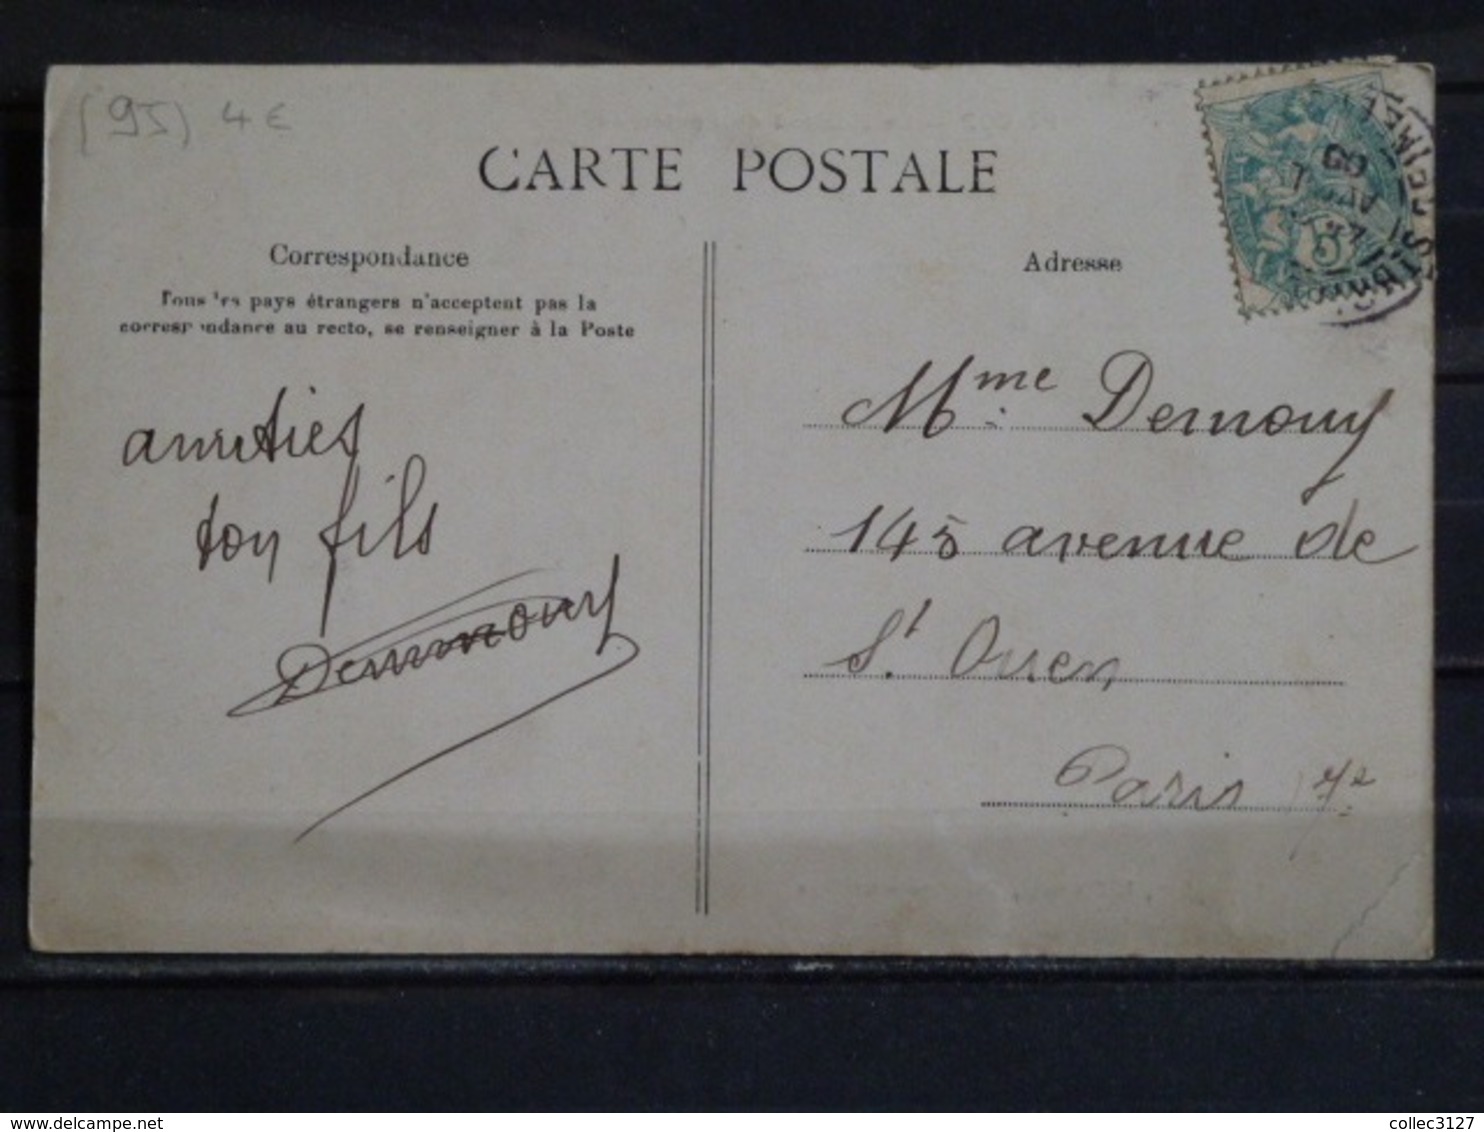 (95) 4€
CARTE POSTALE
Correspondance
Tous les pays étrangers n'acceptent pas la
correspondance au recto, se renseigner à la Poste
Adresse
amitiés
ton fils
Demnouy
Mme Demouy
145 avenue de
St. Ouen
Paris 17e
5
collec3127